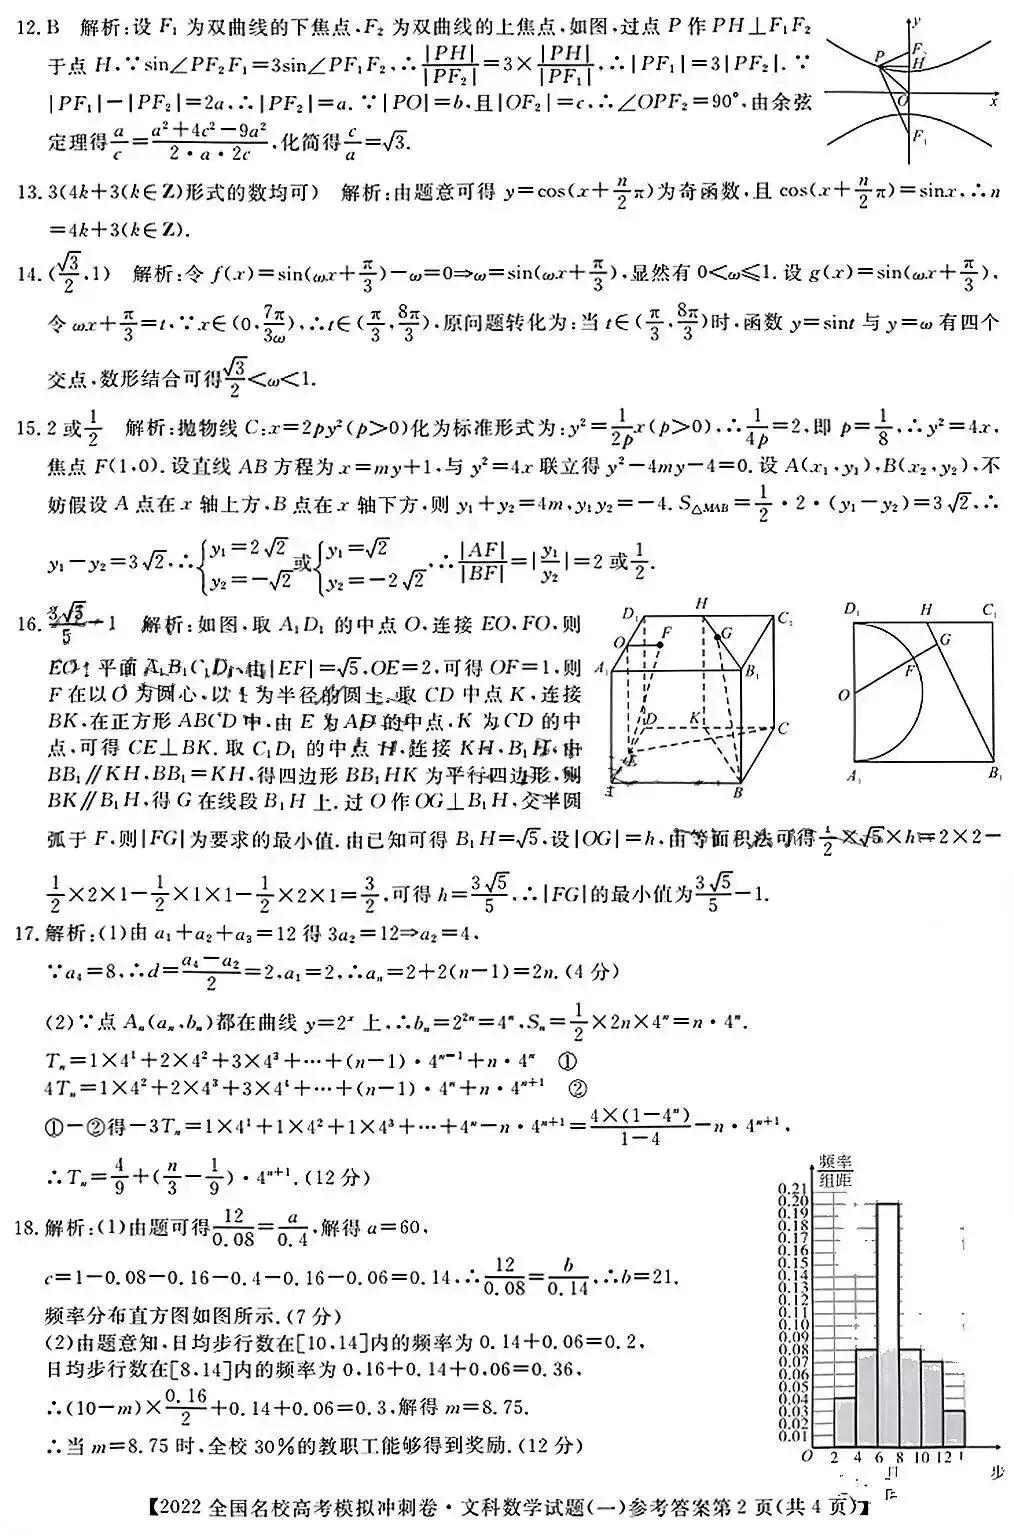 12. B 解析:设 F₁ 为双曲线的下焦点,F₂ 为双曲线的上焦点,如图,过点 P 作 PH⊥F₁F₂
于点 H,∵sin∠PF₂F₁=3sin∠PF₁F₂,∴|PH|/|PF₂|=3×|PH|/|PF₁|,∴|PF₁|=3|PF₂|. ∵
|PF₁|-|PF₂|=2a,∴|PF₂|=a. ∵|PO|=b,且|OF₂|=c,∴∠OPF₂=90°,由余弦
定理得a/c=(a²+4c²-9a²)/(2·a·2c),化简得c/a=√3.
y
P
F₂
H
O
x
F₁
13. 3(4k+3(k∈Z)形式的数均可) 解析:由题意可得 y=cos(x+n/2π)为奇函数,且 cos(x+n/2π)=sinx,∴n
=4k+3(k∈Z).
14. (√3/2,1) 解析:令 f(x)=sin(ωx+π/3)-ω=0⇒ω=sin(ωx+π/3),显然有 0<ω≤1. 设 g(x)=sin(ωx+π/3),
令 ωx+π/3=t,∵x∈(0,7π/3ω),∴t∈(π/3,8π/3),原问题转化为:当 t∈(π/3,8π/3)时,函数 y=sint 与 y=ω 有四个
交点,数形结合可得√3/2<ω<1.
15. 2 或1/2 解析:抛物线 C:x=2py²(p>0)化为标准形式为:y²=1/2p x(p>0),∴1/4p=2,即 p=1/8,∴y²=4x,
焦点 F(1,0). 设直线 AB 方程为 x=my+1,与 y²=4x 联立得 y²-4my-4=0. 设 A(x₁,y₁),B(x₂,y₂),不
妨假设 A 点在 x 轴上方,B 点在 x 轴下方,则 y₁+y₂=4m,y₁y₂=-4. S△MAB=1/2·2·(y₁-y₂)=3√2,∴
y₁-y₂=3√2,∴{y₁=2√2 y₂=-√2 或{y₁=√2 y₂=-2√2,∴|AF|/|BF|=|y₁/y₂|=2 或1/2.
16. 3√5/5-1 解析:如图,取 A₁D₁ 的中点 O,连接 EO,FO,则
EO⊥平面 A₁B₁C₁D₁,由|EF|=√5,OE=2,可得 OF=1,则
F 在以 O 为圆心,以 1 为半径的圆上,取 CD 中点 K,连接
BK,在正方形 ABCD 中,由 E 为 AD 的中点,K 为 CD 的中
点,可得 CE⊥BK. 取 C₁D₁ 的中点 H,连接 KH,B₁H,由
BB₁∥KH,BB₁=KH,得四边形 BB₁HK 为平行四边形,则
BK∥B₁H,得 G 在线段 B₁H 上. 过 O 作 OG⊥B₁H,交半圆
弧于 F,则|FG|为要求的最小值. 由已知可得 B₁H=√5,设|OG|=h,由等面积法可得1/2×√5×h=2×2-
1/2×2×1-1/2×1×1-1/2×2×1=3/2,可得 h=3√5/5,∴|FG|的最小值为3√5/5-1.
D₁ H C₁
O F G
A₁ B₁
D K C
E
B
D₁ H C₁
G
F
O
A₁ B₁
17. 解析:(1)由 a₁+a₂+a₃=12 得 3a₂=12⇒a₂=4,
∵a₄=8,∴d=(a₄-a₂)/2=2,a₁=2,∴aₙ=2+2(n-1)=2n. (4 分)
(2)∵点 Aₙ(aₙ,bₙ)都在曲线 y=2ˣ 上,∴bₙ=2²ⁿ=4ⁿ,Sₙ=1/2×2n×4ⁿ=n·4ⁿ.
Tₙ=1×4¹+2×4²+3×4³+…+(n-1)·4ⁿ⁻¹+n·4ⁿ ①
4Tₙ=1×4²+2×4³+3×4⁴+…+(n-1)·4ⁿ+n·4ⁿ⁺¹ ②
①-②得-3Tₙ=1×4¹+1×4²+1×4³+…+4ⁿ-n·4ⁿ⁺¹=4×(1-4ⁿ)/(1-4)-n·4ⁿ⁺¹,
∴Tₙ=4/9+(n/3-1/9)·4ⁿ⁺¹. (12 分)
18. 解析:(1)由题可得12/0.08=a/0.4,解得 a=60,
c=1-0.08-0.16-0.4-0.16-0.06=0.14,∴12/0.08=b/0.14,∴b=21.
频率分布直方图如图所示. (7 分)
(2)由题意知,日均步行数在[10,14]内的频率为 0.14+0.06=0.2,
日均步行数在[8,14]内的频率为 0.16+0.14+0.06=0.36,
∴(10-m)×0.16/2+0.14+0.06=0.3,解得 m=8.75.
∴当 m=8.75 时,全校 30%的教职工能够得到奖励. (12 分)
频率/组距
0.21
0.20
0.19
0.18
0.17
0.16
0.15
0.14
0.13
0.12
0.11
0.10
0.09
0.08
0.07
0.06
0.05
0.04
0.03
0.02
0.01
O 2 4 6 8 10 12
步
【2022 全国名校高考模拟冲刺卷·文科数学试题(一)参考答案第 2 页(共 4 页)】